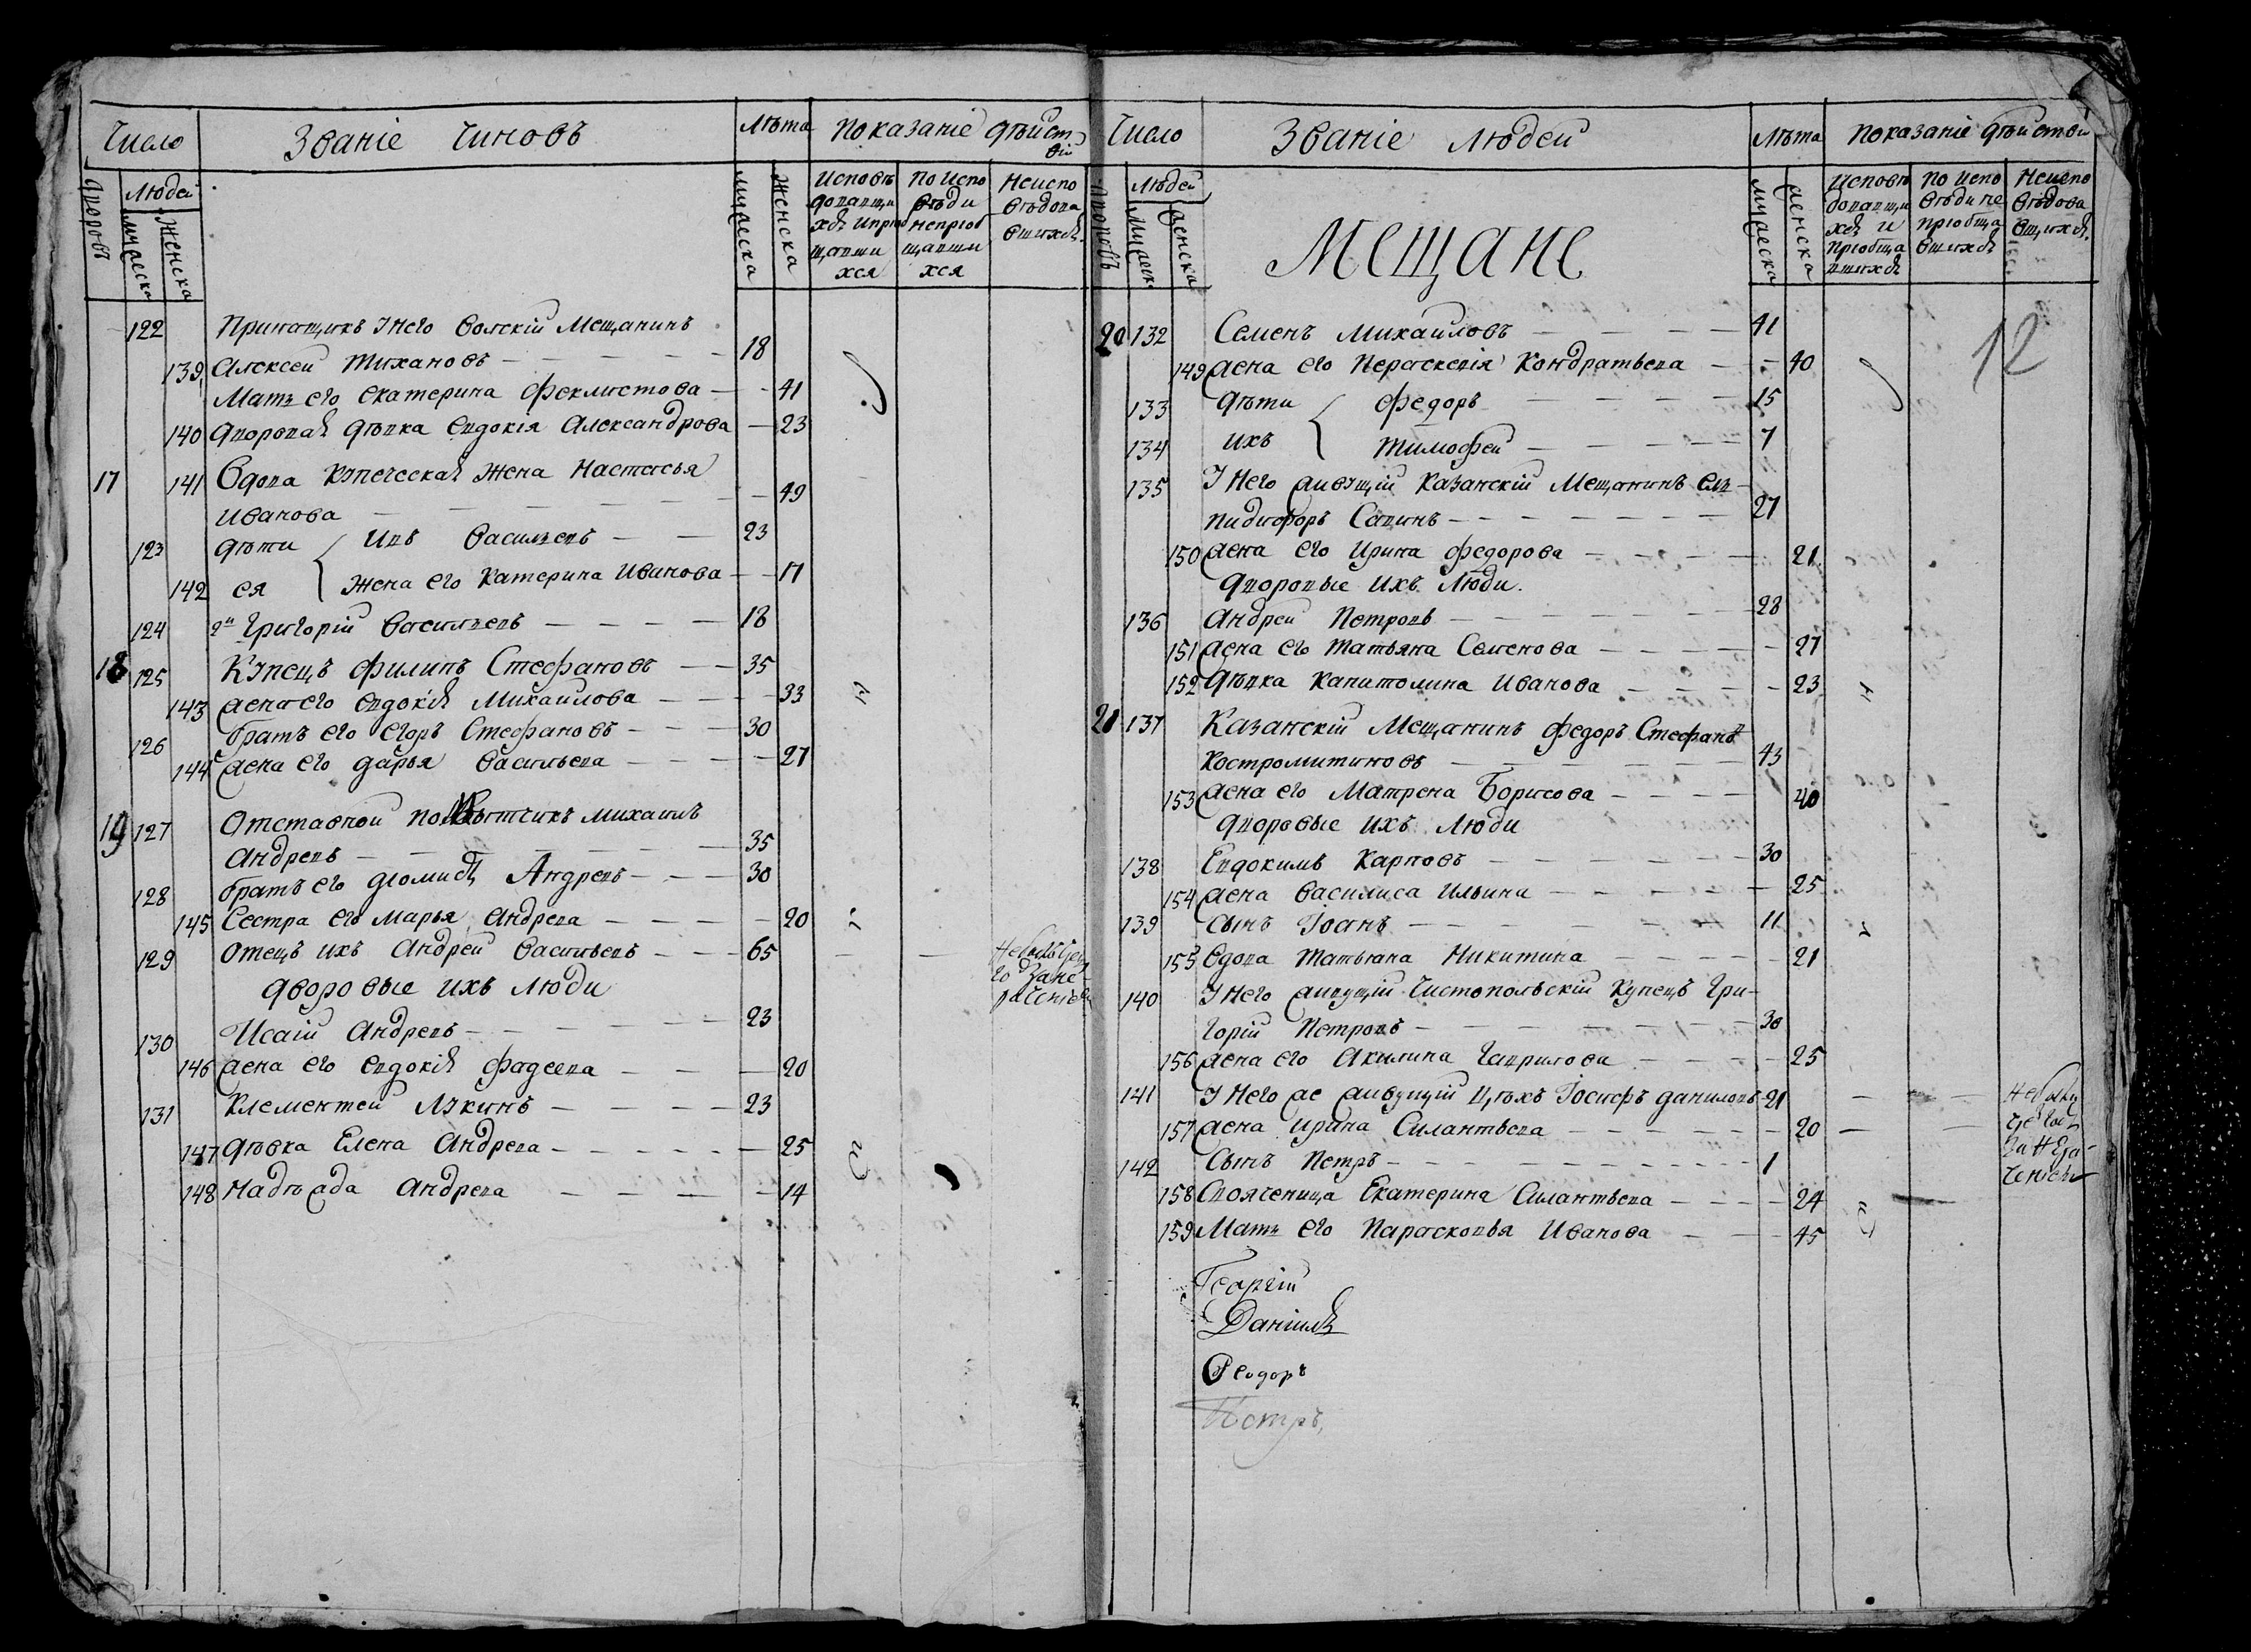 Число Званіе Чиновъ Лѣта Показаніе дѣйст
вій
дворовъ Людей мужеска женска Исповѣ По испо Неиспо
мужеска женска довавши вѣди вѣдова
хъ и прі непріоб вшихъ
щавши щавши
хся хся
122 Прикащикъ У него Волскій Мещанинъ
Алексей Тихановъ 18
139 Мать его Екатерина Феклистова 41
140 Дворовая дѣвка Евдокія Александрова 23
17 141 Вдова Купеческая жена Настасья
Иванова 49
123 дѣти Ивъ Васильевъ 23
142 ея жена его Катерина Иванова 17
124 2й Григорій Васильевъ 18
18 125 Купецъ Филипъ Стефановъ 35
143 жена его Евдокія Михайлова 33
126 братъ его Егоръ Стефановъ 30
144 жена его Дарья Васильева 27
19 127 Отставной Михаилъ
Андревъ 35
128 братъ его Діомидъ Андревъ 30
145 Сестра его Марья Андрева 20
129 Отецъ ихъ Андрей Васильевъ 65
дворовые ихъ люди
130 Исаій Андревъ 23
146 жена его Евдокія Фадеева 20
131 Клементей Лукинъ 23
147 дѣвка Елена Андрева 25
148 Надѣжда Андрева 14
Число Званіе Людей Лѣта Показаніе дѣйствій
дворовъ Людей мужеска женска Исповѣ По испо Неиспо
мужеск женска довавши вѣди не вѣдова
хъ и пріобща вшихъ
пріобща вшихъ
вшихъ
Мещане
12
20 132 Семенъ Михайловъ 41
149 жена его Параскевія Кондратьева 40
133 дѣти Федоръ 15
134 ихъ Тимофей 7
135 У него живущій Казанскій Мещанинъ Ел
пидифоръ Савинъ 27
150 жена его Ирина Федорова 21
дворовые ихъ Люди.
136 Андрей Петровъ 28
151 жена его Татьяна Семенова 27
152 дѣвка Капитолина Иванова 23
21 137 Казанскій Мещанинъ Федоръ Стефанъ
Костромитиновъ 43
153 жена его Матрена Борисова 40
дворовые ихъ Люди
138 Евдокимъ Карповъ 30
154 жена Василиса Ильина 25
139 сынъ Іоанъ 11
155 Вдова Татьяна Никитина 21
140 У него живущій Чистопольскій Купецъ Гри-
горій Петровъ 30
156 жена его Акилина Гаврилова 25
141 У него же живущій Цѣхъ Іосифъ Даниловъ 21
157 жена Ирина Силантьева 20
142 Сынъ Петръ 1
158 Своячница Екатерина Силантьева 24
159 Мать его Парасковья Иванова 45
Георгій
Даніилъ
Феодоръ
Петръ